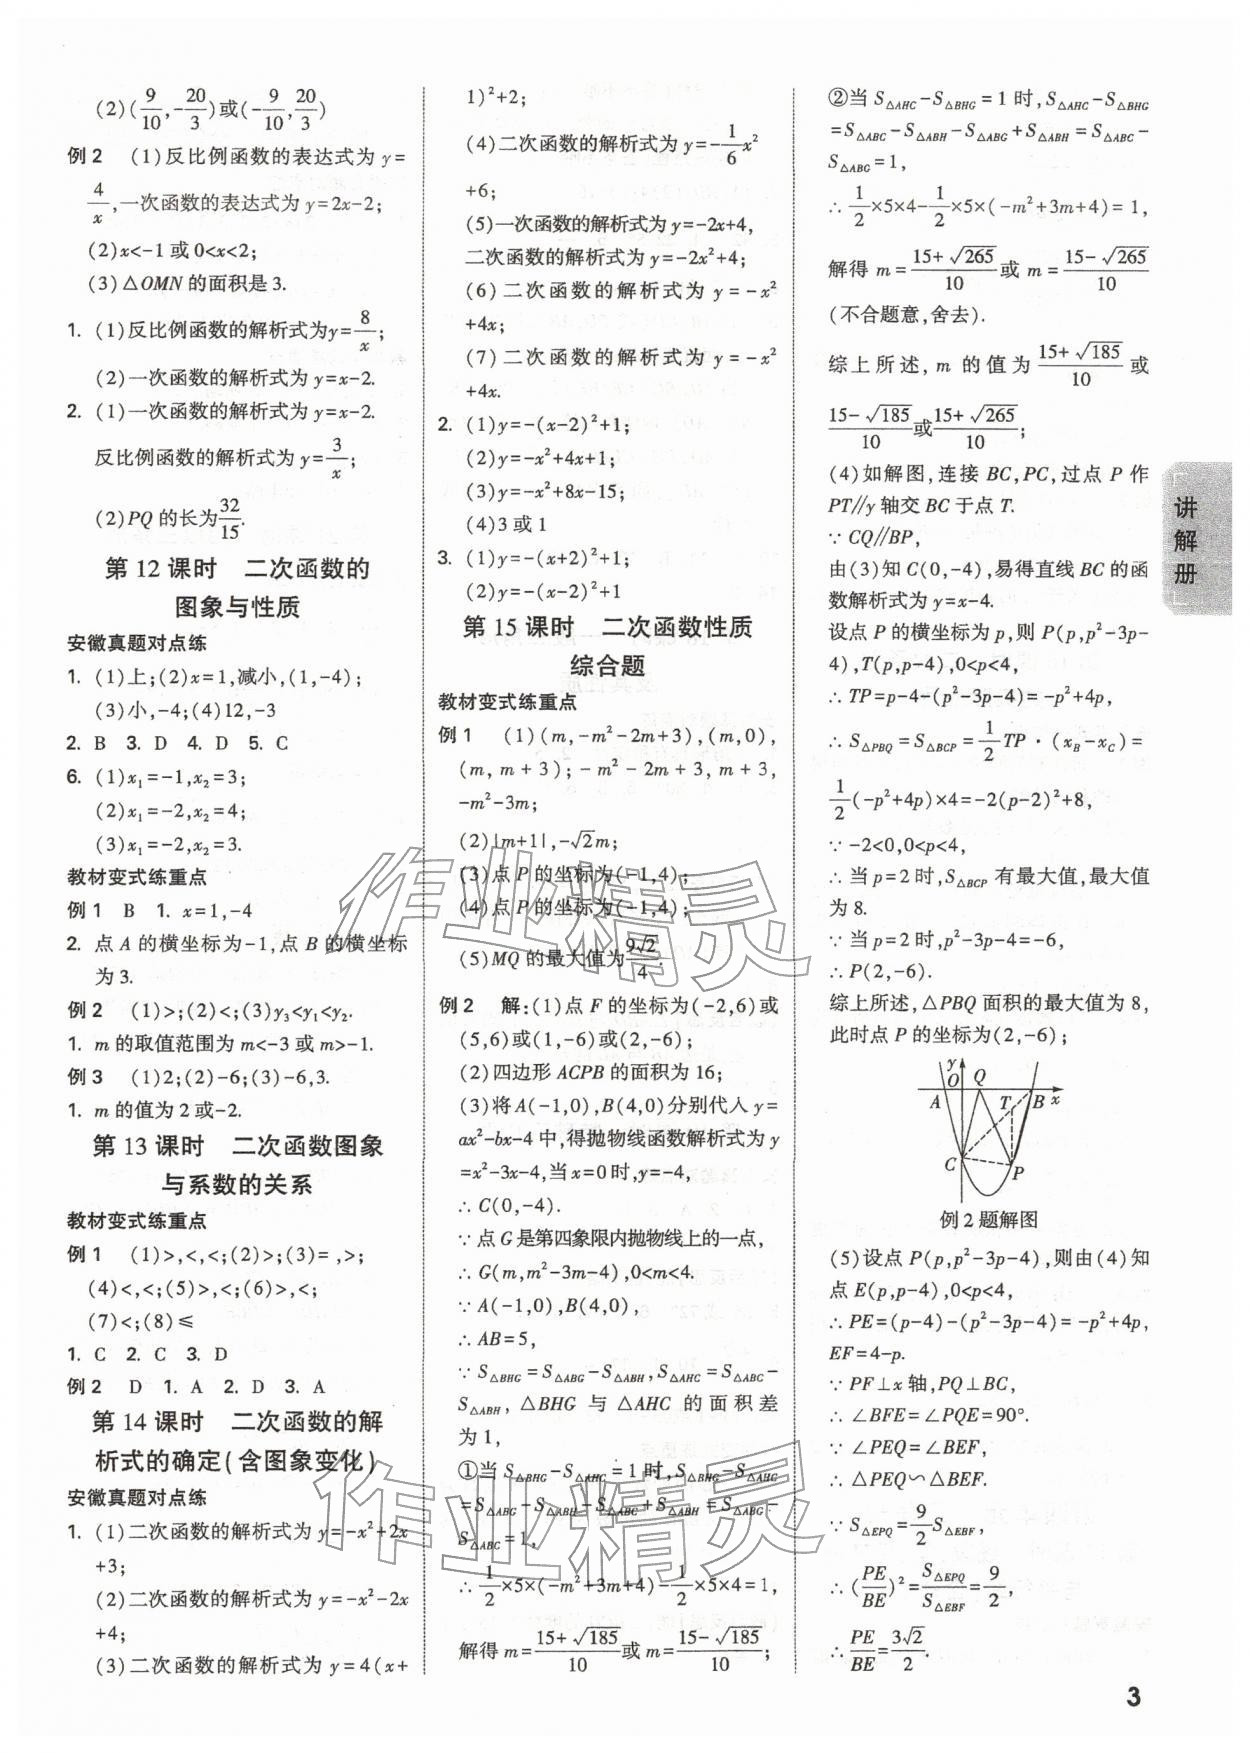 (2)(9/10,-20/3)或(-9/10,20/3)
例2 (1)反比例函数的表达式为y=
4/x,一次函数的表达式为y=2x-2;
(2)x<-1或0<x<2;
(3)△OMN的面积是3.
1. (1)反比例函数的解析式为y=8/x;
(2)一次函数的解析式为y=x-2.
2. (1)一次函数的解析式为y=x-2.
反比例函数的解析式为y=3/x;
(2)PQ的长为32/15.
第12课时 二次函数的
图象与性质
安徽真题对点练
1. (1)上;(2)x=1,减小,(1,-4);
(3)小,-4;(4)12,-3
2. B 3. D 4. D 5. C
6. (1)x₁=-1,x₂=3;
(2)x₁=-2,x₂=4;
(3)x₁=-2,x₂=3.
教材变式练重点
例1 B 1. x=1,-4
2. 点A的横坐标为-1,点B的横坐标
为3.
例2 (1)>;(2)<;(3)y₃<y₁<y₂.
1. m的取值范围为m<-3或m>-1.
例3 (1)2;(2)-6;(3)-6,3.
1. m的值为2或-2.
第13课时 二次函数图象
与系数的关系
教材变式练重点
例1 (1)>,<,<;(2)>;(3)=,>;
(4)<,<;(5)>,<;(6)>,<;
(7)<;(8)≤
1. C 2. C 3. D
例2 D 1. A 2. D 3. A
第14课时 二次函数的解
析式的确定(含图象变化)
安徽真题对点练
1. (1)二次函数的解析式为y=-x²+2x
+3;
(2)二次函数的解析式为y=-x²-2x
+4;
(3)二次函数的解析式为y=4(x+
1)²+2;
(4)二次函数的解析式为y=-1/6x²
+6;
(5)一次函数的解析式为y=-2x+4,
二次函数的解析式为y=-2x²+4;
(6)二次函数的解析式为y=-x²
+4x;
(7)二次函数的解析式为y=-x²
+4x.
2. (1)y=-(x-2)²+1;
(2)y=-x²+4x+1;
(3)y=-x²+8x-15;
(4)3或1
3. (1)y=-(x+2)²+1;
(2)y=-(x-2)²+1
第15课时 二次函数性质
综合题
教材变式练重点
例1 (1)(m,-m²-2m+3),(m,0),
(m,m+3);-m²-2m+3,m+3,
-m²-3m;
(2)|m+1|,-√2m;
(3)点P的坐标为(-1,4);
(4)点P的坐标为(-1,4);
(5)MQ的最大值为9√2/4.
例2 解:(1)点F的坐标为(-2,6)或
(5,6)或(1,-6)或(2,-6);
(2)四边形ACPB的面积为16;
(3)将A(-1,0),B(4,0)分别代入y=
ax²-bx-4中,得抛物线函数解析式为y
=x²-3x-4,当x=0时,y=-4,
∴C(0,-4).
∵点G是第四象限内抛物线上的一点,
∴G(m,m²-3m-4),0<m<4.
∵A(-1,0),B(4,0),
∴AB=5,
∵S△BHG=S△ABG-S△ABH,S△AHC=S△ABC-
S△ABH,△BHG与△AHC的面积差
为1,
①当S△BHG-S△AHC=1时,S△BHG-S△AHC
=S△ABG-S△ABH-S△ABC+S△ABH=S△ABG-
S△ABC=1,
∴1/2×5×(-m²+3m+4)-1/2×5×4=1,
解得m=(15+√185)/10或m=(15-√185)/10;
②当S△AHC-S△BHG=1时,S△AHC-S△BHG
=S△ABC-S△ABH-S△ABG+S△ABH=S△ABC-
S△ABG=1,
∴1/2×5×4-1/2×5×(-m²+3m+4)=1,
解得m=(15+√265)/10或m=(15-√265)/10
(不合题意,舍去).
综上所述,m的值为(15+√185)/10或
(15-√185)/10或(15+√265)/10;
(4)如解图,连接BC,PC,过点P作
PT//y轴交BC于点T.
∵CQ//BP,
由(3)知C(0,-4),易得直线BC的函
数解析式为y=x-4.
设点P的横坐标为p,则P(p,p²-3p-
4),T(p,p-4),0<p<4,
∴TP=p-4-(p²-3p-4)=-p²+4p,
∴S△PBQ=S△BCP=1/2TP·(x_B-x_C)=
1/2(-p²+4p)×4=-2(p-2)²+8,
∵-2<0,0<p<4,
∴当p=2时,S△BCP有最大值,最大值
为8.
∵当p=2时,p²-3p-4=-6,
∴P(2,-6).
综上所述,△PBQ面积的最大值为8,
此时点P的坐标为(2,-6);
y
A O Q T B x
C P
例2题解图
(5)设点P(p,p²-3p-4),则由(4)知
点E(p,p-4),0<p<4,
∴PE=(p-4)-(p²-3p-4)=-p²+4p,
EF=4-p.
∵PF⊥x轴,PQ⊥BC,
∴∠BFE=∠PQE=90°.
∵∠PEQ=∠BEF,
∴△PEQ∽△BEF.
∵S△EPQ=9/2S△EBF,
∴(PE/BE)²=S△EPQ/S△EBF=9/2,
∴PE/BE=3√2/2.
讲解册
3
作业精灵
作业精灵